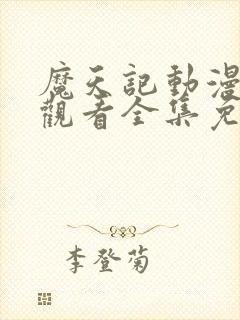 魔天記動漫
觀看全集免
李登菊